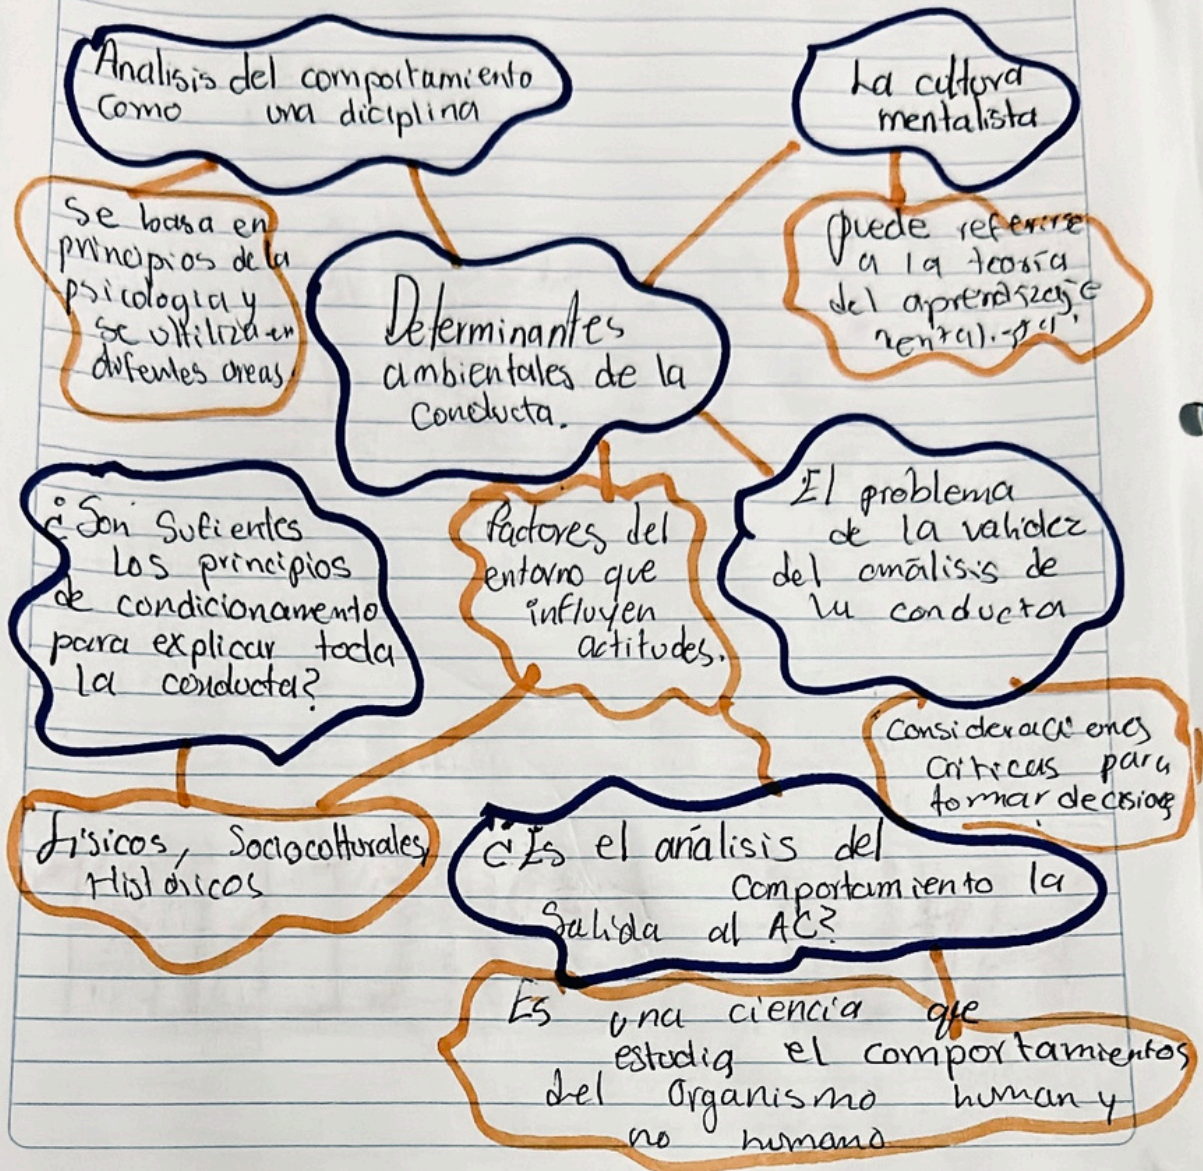 Analisis del comportamiento
como una diciplina
La cultura
mentalista
Se basa en
principios de la
psicologia y
se ultiliza en
difentes areas
puede referirse
a la teoría
del aprendizaje
Determinantes
ambientales de la
Conducta.
¿Son Sufientes
Los principios
de condicionamento
para explicar toda
La conducta?
factores del
entorno que
influyen
actitudes.
El problema
de la validez
del análisis de
lu conducta
Consideraciones
Criticas para
tomar decisiones
físicos, Socioculturales,
Históricos
¿Es el análisis del
comportamiento la
Salida al AC?
Es una ciencia que
estudia el comportamientos
del Organismo human y
no humano